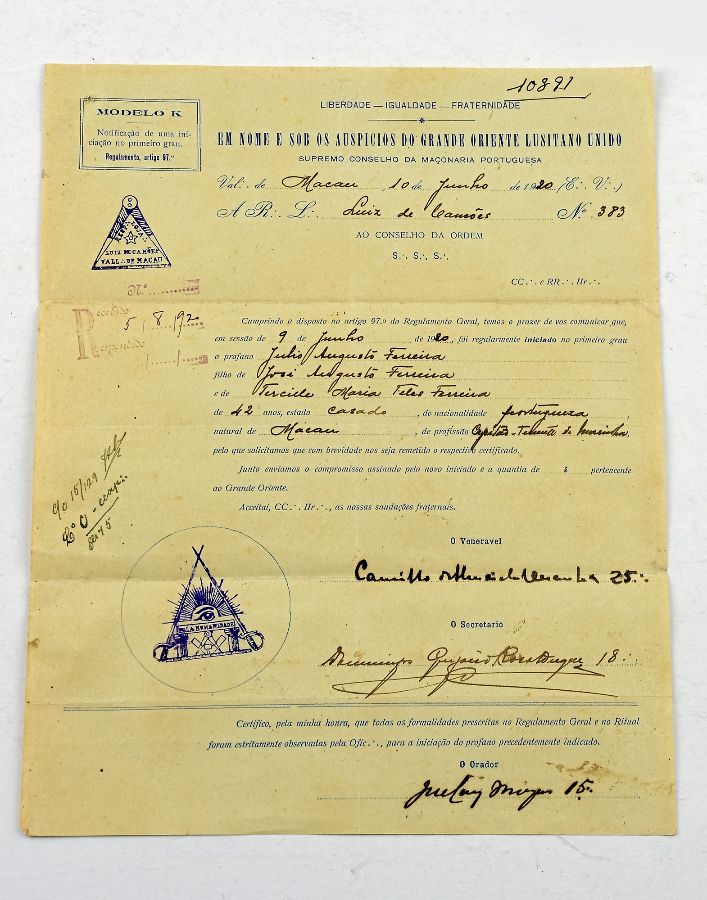 10891
MODELO K
Notificação de uma ini-
ciação no primeiro grau.
Regulamento, artigo 97.º
LIBERDADE — IGUALDADE — FRATERNIDADE
EM NOME E SOB OS AUSPICIOS DO GRANDE ORIENTE LUSITANO UNIDO
SUPREMO CONSELHO DA MAÇONARIA PORTUGUESA
Val.·. de Macau 10 de Junho de 1920 (E.·. V.·.)
A R.·. L.·. Luiz de Camões N.º 383
LUIS DE CAMÕES
VALL.·. DE MACAU
AO CONSELHO DA ORDEM
S.·. S.·. S.·.
CC.·. e RR.·. Ilr.·.
N.º
Recebido 5/8/92
Respondido
Cumprindo o disposto no artigo 97.º do Regulamento Geral, temos o prazer de vos comunicar que,
em sessão de 9 de Junho de 1920, fói regularmente iniciado no primeiro grau
o profano Julio Augusto Ferreira
filho de José Augusto Ferreira
e de Tercicle Maria Teles Ferreira
de 42 anos, estado casado, de nacionalidade portugueza,
natural de Macau, de profissão Capitão-Tenente de marinha
pelo que solicitamos que com brevidade nos seja remetido o respectivo certificado.
Junto enviamos o compromisso assinado pelo novo iniciado e a quantia de $ pertencente
ao Grande Oriente.
Aceitai, CC.·. Ilr.·., as nossas saudações fraternais.
PELA HUMANIDADE
O Veneravel
Camillo 25.·.
O Secretario
Domingos Gregorio 18.·.
Certifico, pela minha honra, que todas as formalidades prescritas no Regulamento Geral e no Ritual
foram estritamente observadas pela Ofic.·., para a iniciação do profano precedentemente indicado.
O Orador
15.·.